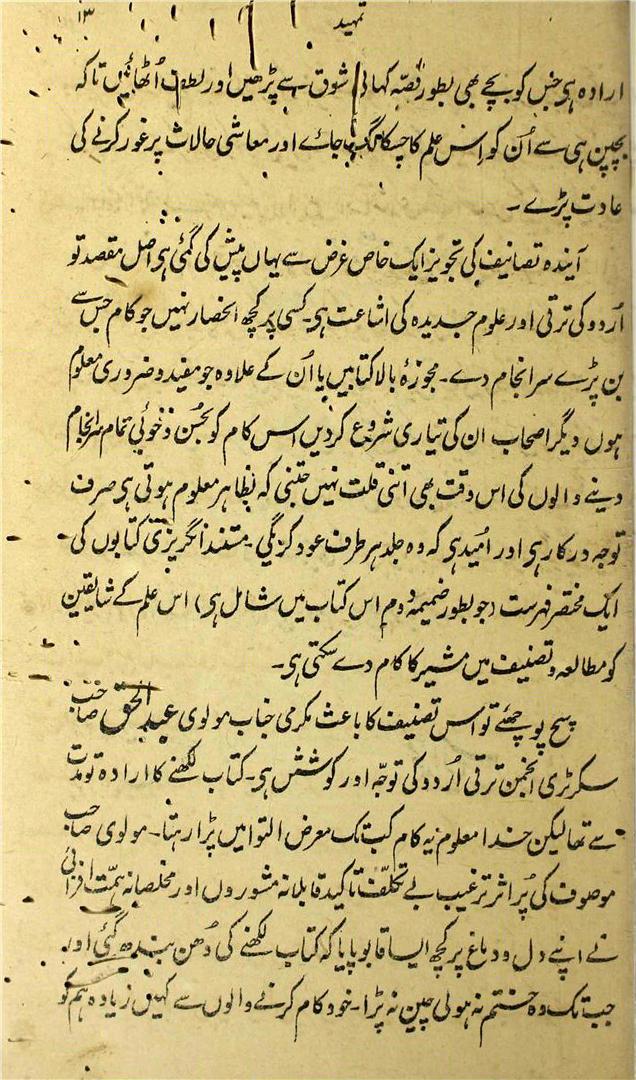 تمہید ۱۳
ارادہ ہی جس کو بچے بھی بطور قصّہ کہانی شوق سے پڑھیں اور لطف اُٹھائیں تاکہ
بچپن ہی سے اُن کو اِس علم کا چسکا لگ جائے اور معاشی حالات پر غور کرنے کی
عادت پڑے۔
آیندہ تصانیف کی تجویز ایک خاص غرض سے یہاں پیش کی گئی ہی اصل مقصد تو
اُردو کی ترقی اور علوم جدیدہ کی اشاعت ہی۔ کسی پر کچھ انحصار نہیں جو کام جس سے
بن پڑے سرانجام دے۔ مجوزۂ بالا کتابیں یا اُن کے علاوہ جو مفید و ضروری معلوم
ہوں دیگر اصحاب ان کی تیاری شروع کردیں اس کام کو بحُسن و خوبی تمام سرانجام
دینے والوں کی اس وقت بھی اتنی قلت نہیں جتنی کہ بظاہر معلوم ہوتی ہی صرف
توجہ درکار ہی اور اُمید ہی کہ وہ جلد ہر طرف عود کریگی۔ مستند انگریزی کتابوں کی
ایک مختصر فہرست (جو بطور ضمیمہ دوم اس کتاب میں شامل ہی) اس علم کے شایقین
کو مطالعہ و تصنیف میں مشیر کا کام دے سکتی ہی۔
سچ پوچھئے تو اس تصنیف کا باعث مکرمی جناب مولوی عبدالحق صاحب
سکرٹری انجمن ترقی اُردو کی توجّہ اور کوشش ہی۔ کتاب لکھنے کا ارادہ تو مدت
سے تھا لیکن خدا معلوم یہ کام کب تک معرض التوا میں پڑا رہتا۔ مولوی صاحب
موصوف کی پُر اثر ترغیب بے تکلّف تاکید قابلانہ مشوروں اور مخلصانہ ہمّت افزائی
نے اپنے دل و دماغ پر کچھ ایسا قابو پایا کہ کتاب لکھنے کی دُھن بندھ گئی اور
جب تک وہ ختم نہ ہولی چین نہ پڑا۔ خود کام کرنے والوں سے کہیں زیادہ ہم کو